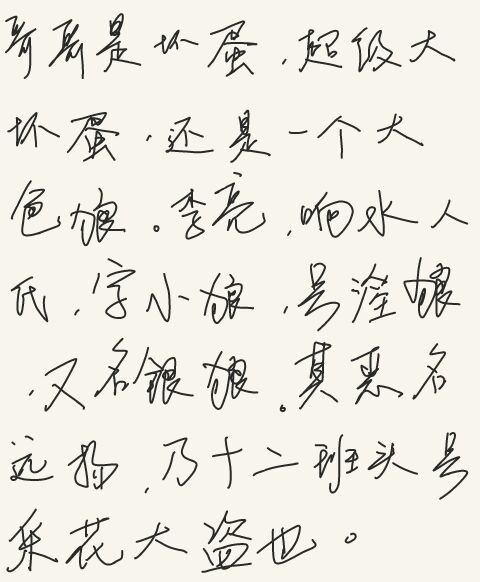 哥哥是坏蛋，超级大
坏蛋，还是一个大
色狼。李亮，响水人
氏，字小狼，号淫狼
，又名銀狼。其恶名
远扬，乃十二班头号
采花大盗也。